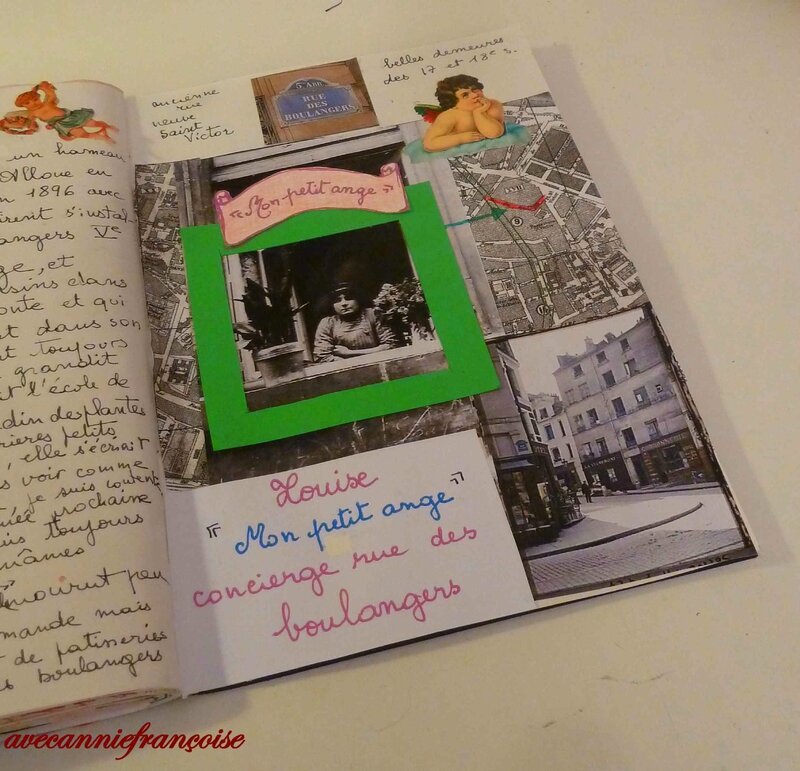 un hameau
Alloue en
n 1896 avec
irent s'instal
angers Ve
ge, et
sins dans
oute et qui
t dans son
t toujours
grandit
it l'école de
din des plantes
rieres petits
elle s'écriait
s voir comme
je suis content
née prochaine
is toujours
mêmes
»
mourut peu
mande mais
t de patisseries
s boulangers
ancienne
rue
neuve
Saint
Victor
5e Arrt
RUE
DES
BOULANGERS
belles demeures
des 17 et 18e s.
« Mon petit ange »
Louise
« Mon petit ange »
concierge rue des
boulangers
avecanniefrançoise